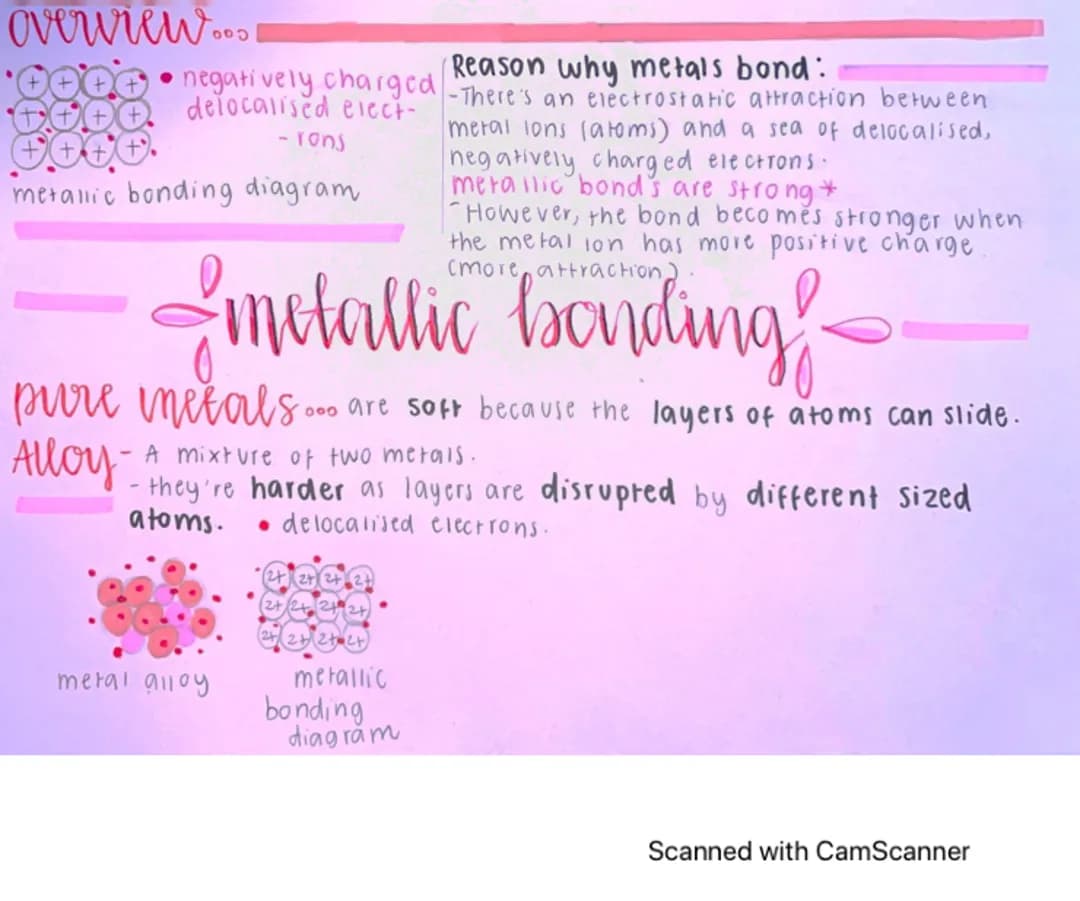 overview...
+ + + +
+ + + +
+ + + +
• negatively charged
delocalised elect-
- rons
metallic bonding diagram
Reason why metals bond:
- There's an electrostatic attraction between
metal ions (atoms) and a sea of delocalised,
negatively charged electrons.
metallic bonds are strong*
- However, the bond becomes stronger when
the metal ion has more positive charge
(more attraction).
metallic bonding
pure metals... are soft because the layers of atoms can slide.
Alloy - A mixture of two metals.
- they're harder as layers are disrupted by different sized
atoms. • delocalised electrons.
2+ 2+ 2+ 2+
2+ 2+ 2+ 2+
2+ 2+ 2+ 2+
metal alloy
metallic
bonding
diagram
Scanned with CamScanner